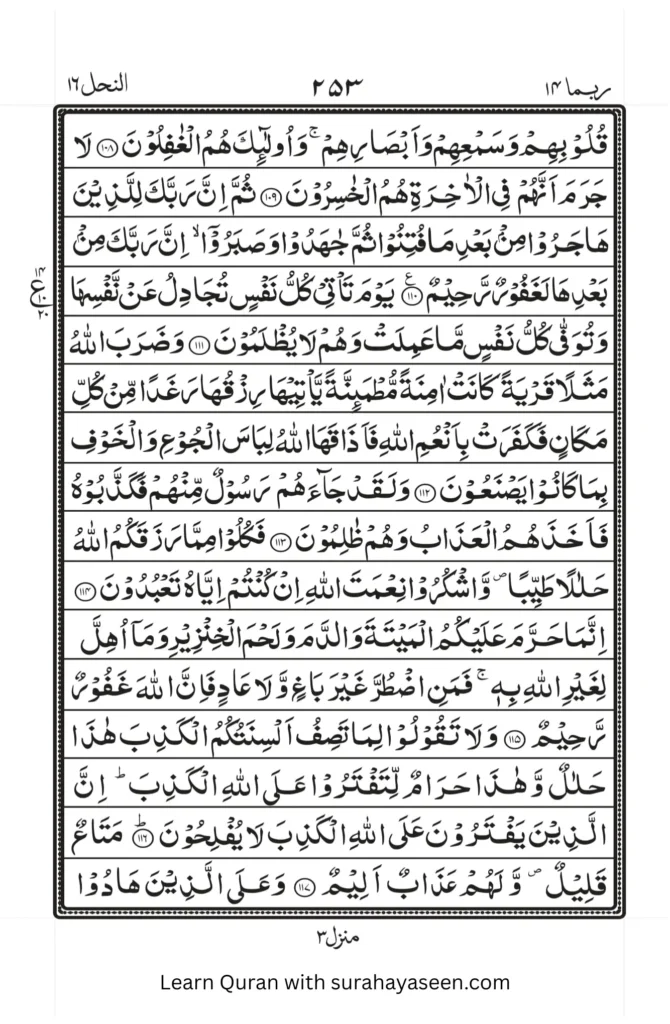 ربما ۱۴ ۲۵۳ النحل ۱۶
قُلُوۡبِهِمۡ وَسَمۡعِهِمۡ وَاَبۡصَارِهِمۡ ۚ وَاُولٰٓئِكَ هُمُ الۡغٰفِلُوۡنَ ﴿۱۰۸﴾ لَا
جَرَمَ اَنَّهُمۡ فِى الۡاٰخِرَةِ هُمُ الۡخٰسِرُوۡنَ ﴿۱۰۹﴾ ثُمَّ اِنَّ رَبَّكَ لِلَّذِيۡنَ
هَاجَرُوۡا مِنۡۢ بَعۡدِ مَا فُتِنُوۡا ثُمَّ جٰهَدُوۡا وَصَبَرُوۡۤا ۙ اِنَّ رَبَّكَ مِنۡۢ
بَعۡدِهَا لَغَفُوۡرٌ رَّحِيۡمٌ ﴿۱۱۰﴾ ع يَوۡمَ تَاۡتِىۡ كُلُّ نَفۡسٍ تُجَادِلُ عَنۡ نَّفۡسِهَا
وَتُوَفّٰى كُلُّ نَفۡسٍ مَّا عَمِلَتۡ وَهُمۡ لَا يُظۡلَمُوۡنَ ﴿۱۱۱﴾ وَضَرَبَ اللّٰهُ
مَثَلًا قَرۡيَةً كَانَتۡ اٰمِنَةً مُّطۡمَٮِٕنَّةً يَّاۡتِيۡهَا رِزۡقُهَا رَغَدًا مِّنۡ كُلِّ
مَكَانٍ فَكَفَرَتۡ بِاَنۡعُمِ اللّٰهِ فَاَذَاقَهَا اللّٰهُ لِبَاسَ الۡجُوۡعِ وَالۡخَوۡفِ
بِمَا كَانُوۡا يَصۡنَعُوۡنَ ﴿۱۱۲﴾ وَلَقَدۡ جَآءَهُمۡ رَسُوۡلٌ مِّنۡهُمۡ فَكَذَّبُوۡهُ
فَاَخَذَهُمُ الۡعَذَابُ وَهُمۡ ظٰلِمُوۡنَ ﴿۱۱۳﴾ فَكُلُوۡا مِمَّا رَزَقَكُمُ اللّٰهُ
حَلٰلًا طَيِّبًا ص وَّاشۡكُرُوۡا نِعۡمَتَ اللّٰهِ اِنۡ كُنۡتُمۡ اِيَّاهُ تَعۡبُدُوۡنَ ﴿۱۱۴﴾
اِنَّمَا حَرَّمَ عَلَيۡكُمُ الۡمَيۡتَةَ وَالدَّمَ وَلَحۡمَ الۡخِنۡزِيۡرِ وَمَاۤ اُهِلَّ
لِغَيۡرِ اللّٰهِ بِهٖ ۚ فَمَنِ اضۡطُرَّ غَيۡرَ بَاغٍ وَّلَا عَادٍ فَاِنَّ اللّٰهَ غَفُوۡرٌ
رَّحِيۡمٌ ﴿۱۱۵﴾ وَلَا تَقُوۡلُوۡا لِمَا تَصِفُ اَلۡسِنَتُكُمُ الۡكَذِبَ هٰذَا
حَلٰلٌ وَّهٰذَا حَرَامٌ لِّتَفۡتَرُوۡا عَلَى اللّٰهِ الۡكَذِبَ ؕ اِنَّ
الَّذِيۡنَ يَفۡتَرُوۡنَ عَلَى اللّٰهِ الۡكَذِبَ لَا يُفۡلِحُوۡنَ ؕ ﴿۱۱۶﴾ مَتَاعٌ
قَلِيۡلٌ ص وَّلَهُمۡ عَذَابٌ اَلِيۡمٌ ﴿۱۱۷﴾ وَعَلَى الَّذِيۡنَ هَادُوۡا
منزل ۳
Learn Quran with surahayaseen.com